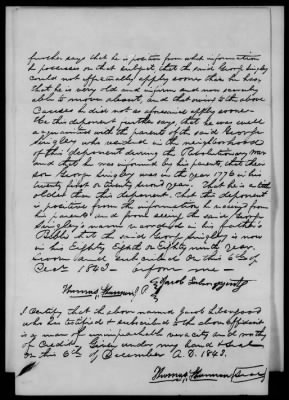 further says that he is positive from what information
he possesses on that subject, that the said George Singley
could not effectually apply sooner than he has
that he is very old and infirm and now scarcely
able to move about, and that owing to the above
Causes he did not as aforesaid apply sooner
He this deponent further says, that he was well
acquainted with the parents of the said George
Singley who resided in the neighborhood
of this deponent during the Revolutionary war
and that he was informed by his parents, that their
son George Singley was in the year 1776 in his
twenty first or twenty second year. That he is a little
older than this deponent. That this deponent
is positive from the information he
his parents and from seeing the said George
Singley's name recorded in his
Bible that the said George Singley is now
in his Eighty Eighth or Eighty ninth year.
Sworn and subscribed on this 6th of
Decr 1843 - before me -
Jacob
Thomas J. P.
I Certify that the above named Jacob
who has testified & subscribed to the above affidavit
is a man of unimpeachable veracity and worthy
of Credit, Given under my hand & Seal
on this 6th of December A.D. 1843.
Thomas (Seal)